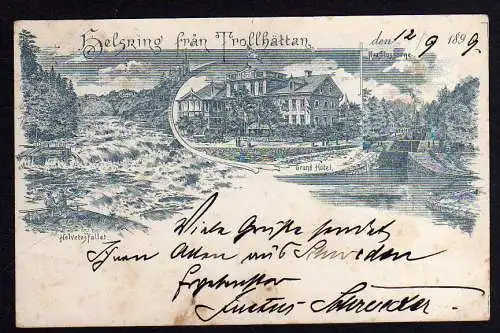 Helsning från Trollhättan
den 12/9 1899
Grand Hôtel.
Helvetesfallet
Viele Grüße sendet
Ihnen Allen aus Schweden
Ergebenster
Schroeder.